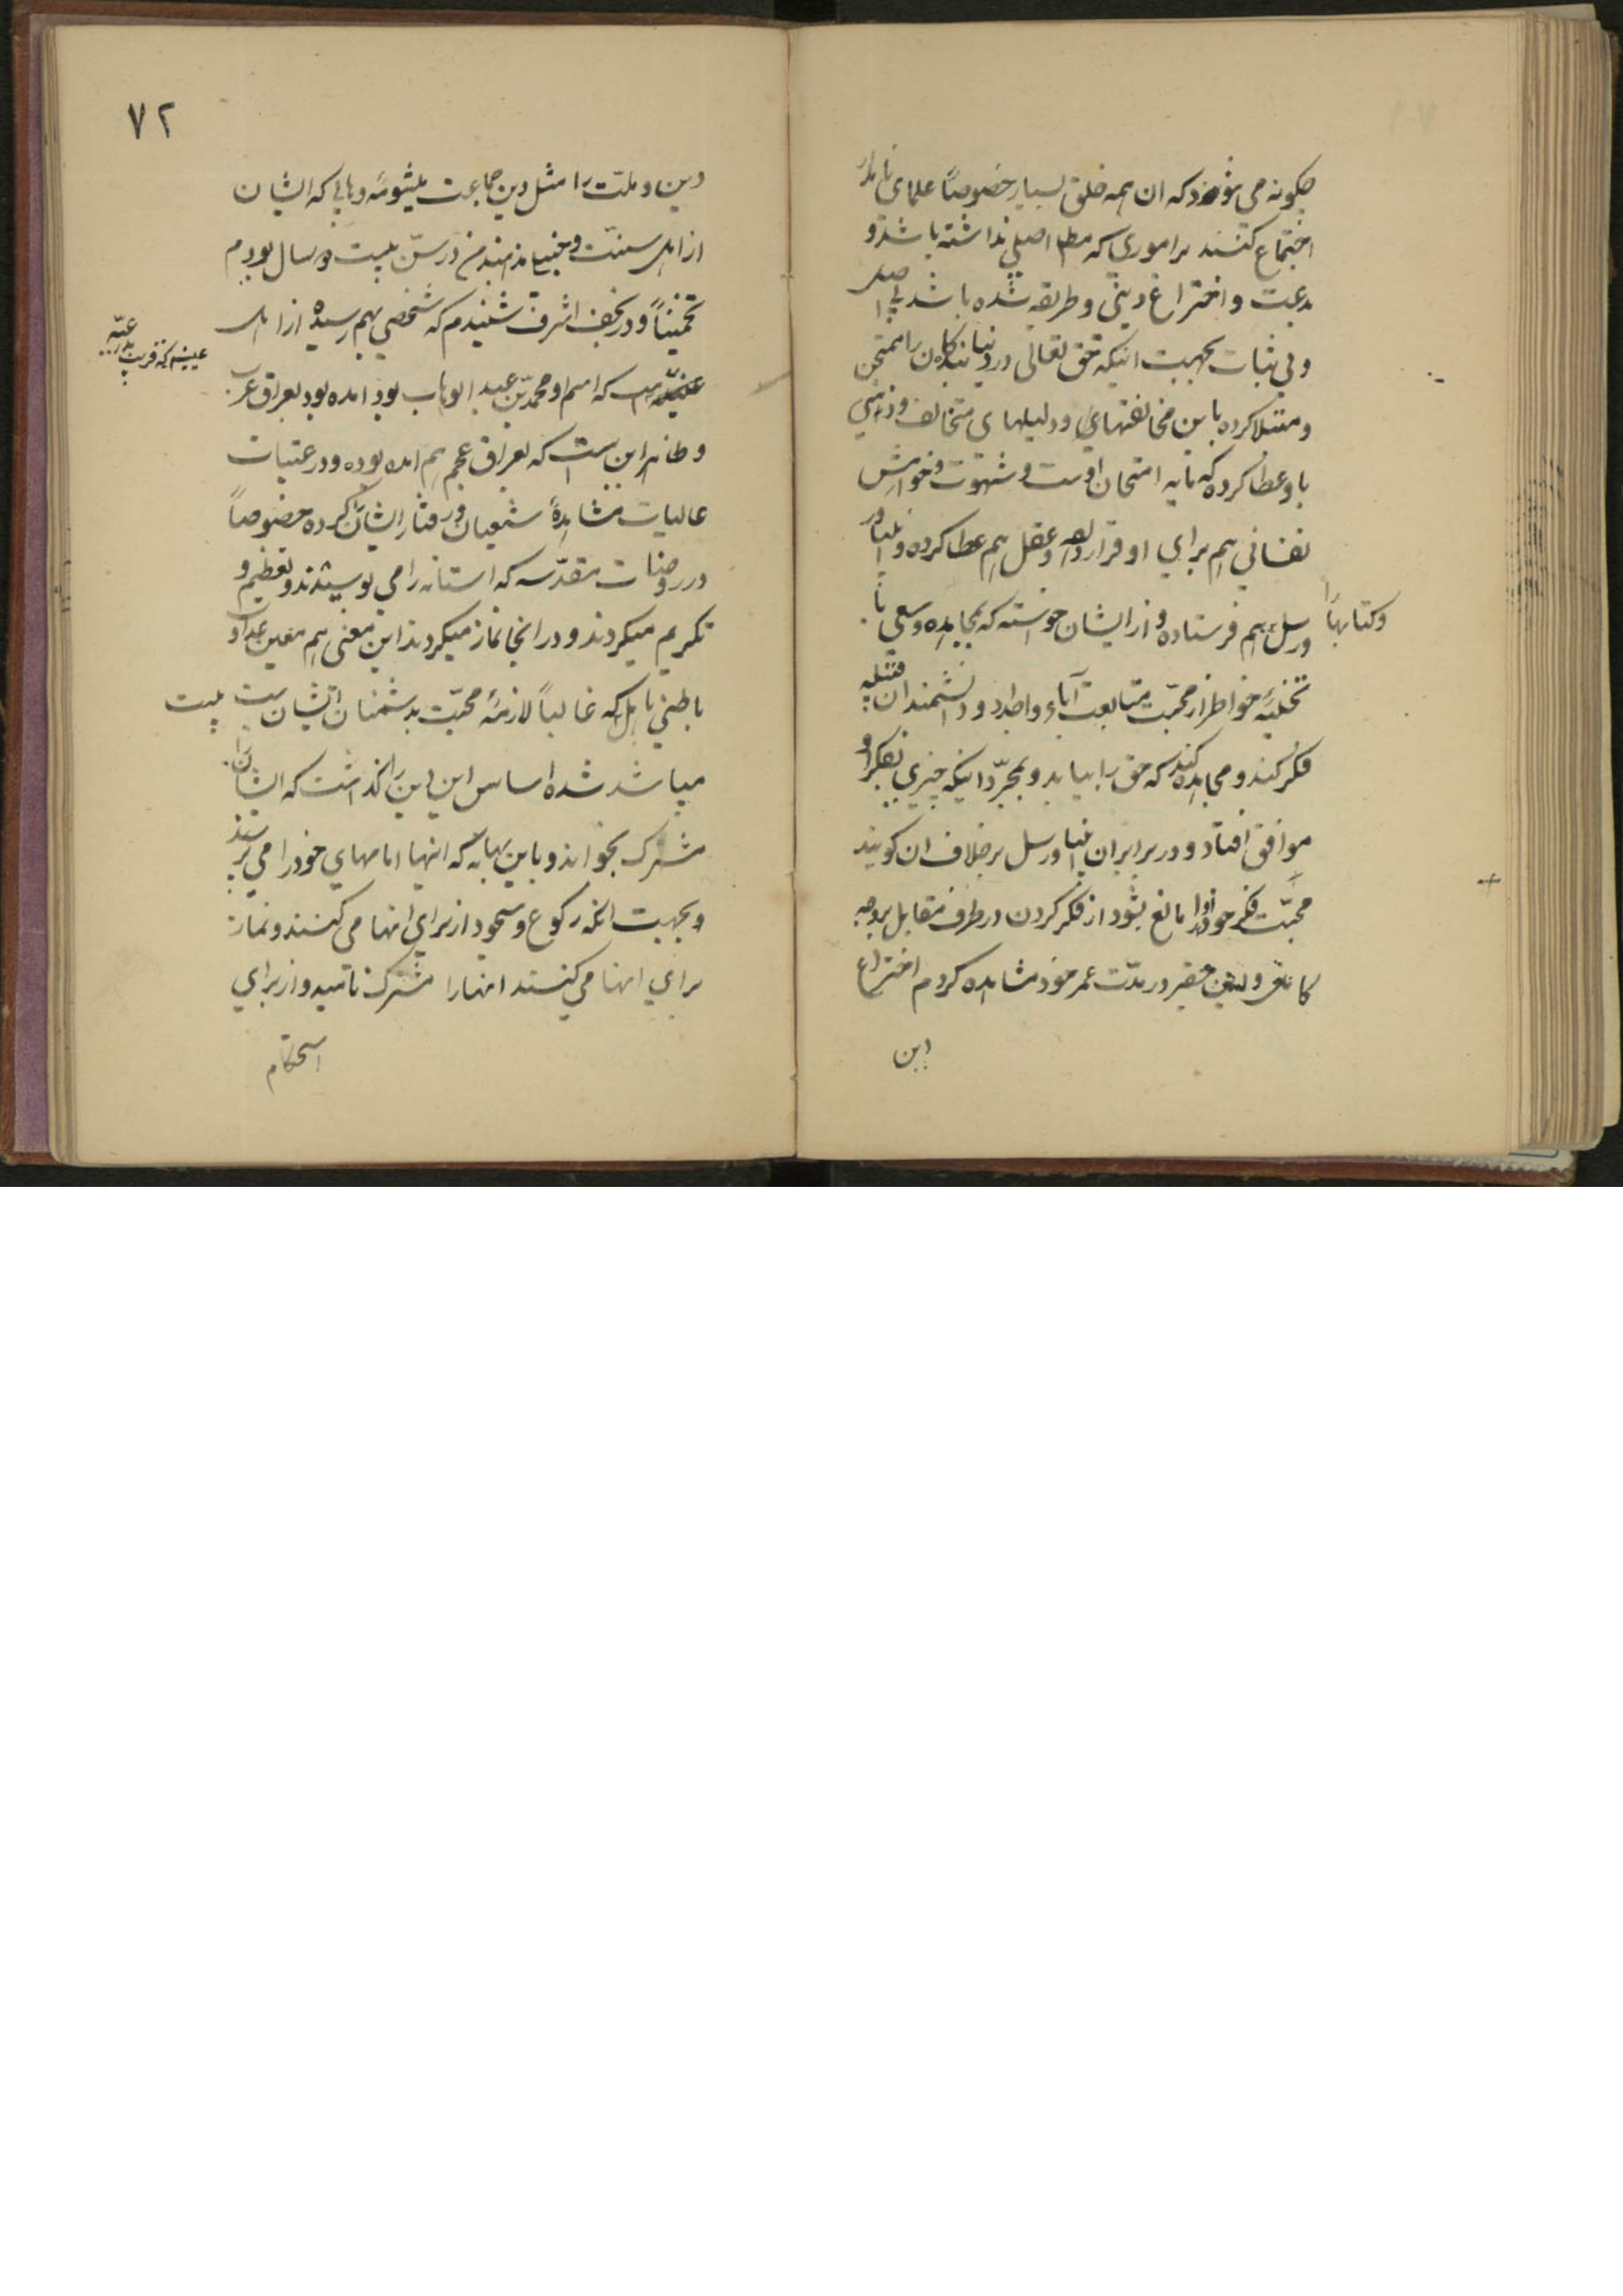 چکونه می شود که ان همه خلق بسیار خصوصاً علمای نامدار
اجتماع کنند بر اموری که مطلقا اصلی نداشته باشد و
بدعت و اختراع دینی و طریقه شده باشد بی اصل
و بی ثبات بجهت اینکه حق تعالی در دنیا بندکان را ممتحن
و مبتلا کرده باین مخالفتهای و دلیلهای متخالف و ذهنی
باو عطا کرده که مایه امتحان اوست و شهوت و خواهش
نفسانی هم برای او قرار داده و عقل هم عطا کرده و انبیا و
ورسل هم فرستاده و از ایشان خواسته که مجاهده و سعی با
وکتابها
تخلیه خواطر از محبت متابعت آباء و اجداد و دانشمندان قبیله
فکر کنند و مجاهده کنند که حق را بیابند و بمجرّد اینکه چیزی بفکر او
موافق افتاد و در برابر ان انبیا و رسل بر خلاف ان کویند
محبّت فکر خود او را مانع بشود از فکر کردن در طرف مقابل بر وجه
کامل و این حقیر در مدّت عمر خود مشاهده کردم اختراع
دین
٧٢
دین و ملت را مثل دین جماعت میشومه وهابی که ایشان
از اهل سنت و من در سنّ بیست و سال بودم
تخمیناً و در نجف اشرف شنیدم که شخصی بهم رسیده از اهل
عیینه که قریب بدرعیّه
که اسم او محمّد بن عبد الوهاب بود امده بود بعراق عرب
و ظاهر این است که بعراق عجم هم امده بوده و در عتبات
عالیات مشاهدۀ شیعیان و رفتار ایشان را کرده خصوصاً
در روضات مقدّسه که استانه را می بوسیدند و تعظیم و
تکریم میکردند و در انجا نماز میکردند این معنی هم معین عداوت
باطنی باهل بیت که غالباً لازمۀ محبّت بدشمنان ایشان است
میباشد شده اساس این دین را کذاشت که ایشان را
مشرک بخواند و باین بهانه که اینها امامهای خود را می پرستند
و بجهت ائمه رکوع و سجود از برای انها می کنند و نماز
برای انها می کنند انها را مشرک نامید و از برای
استحکام